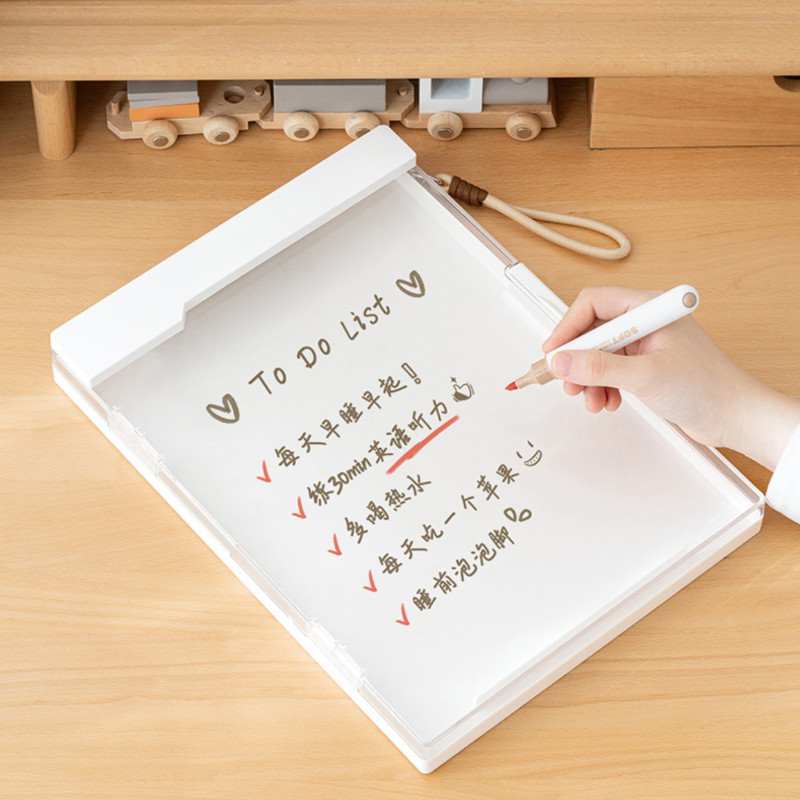 To Do List
每天早睡早起!
练30min英语听力
多喝热水
每天吃一个苹果
睡前泡泡脚